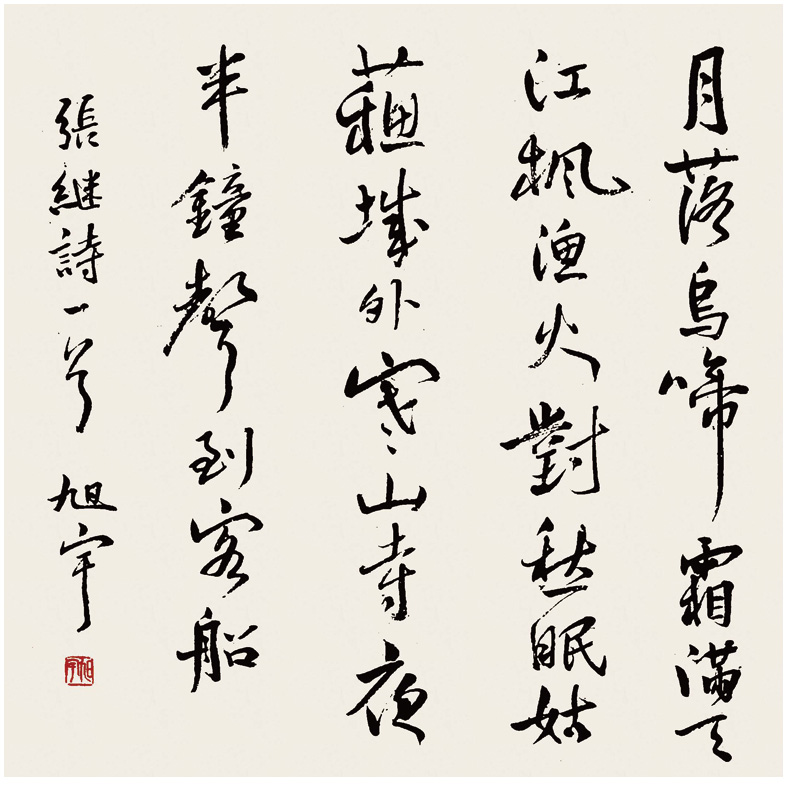 月落烏啼霜滿天
江楓渔火對愁眠姑
蘓城外寒山寺夜
半鐘聲到客船
張継詩一首 旭宇
旭宇